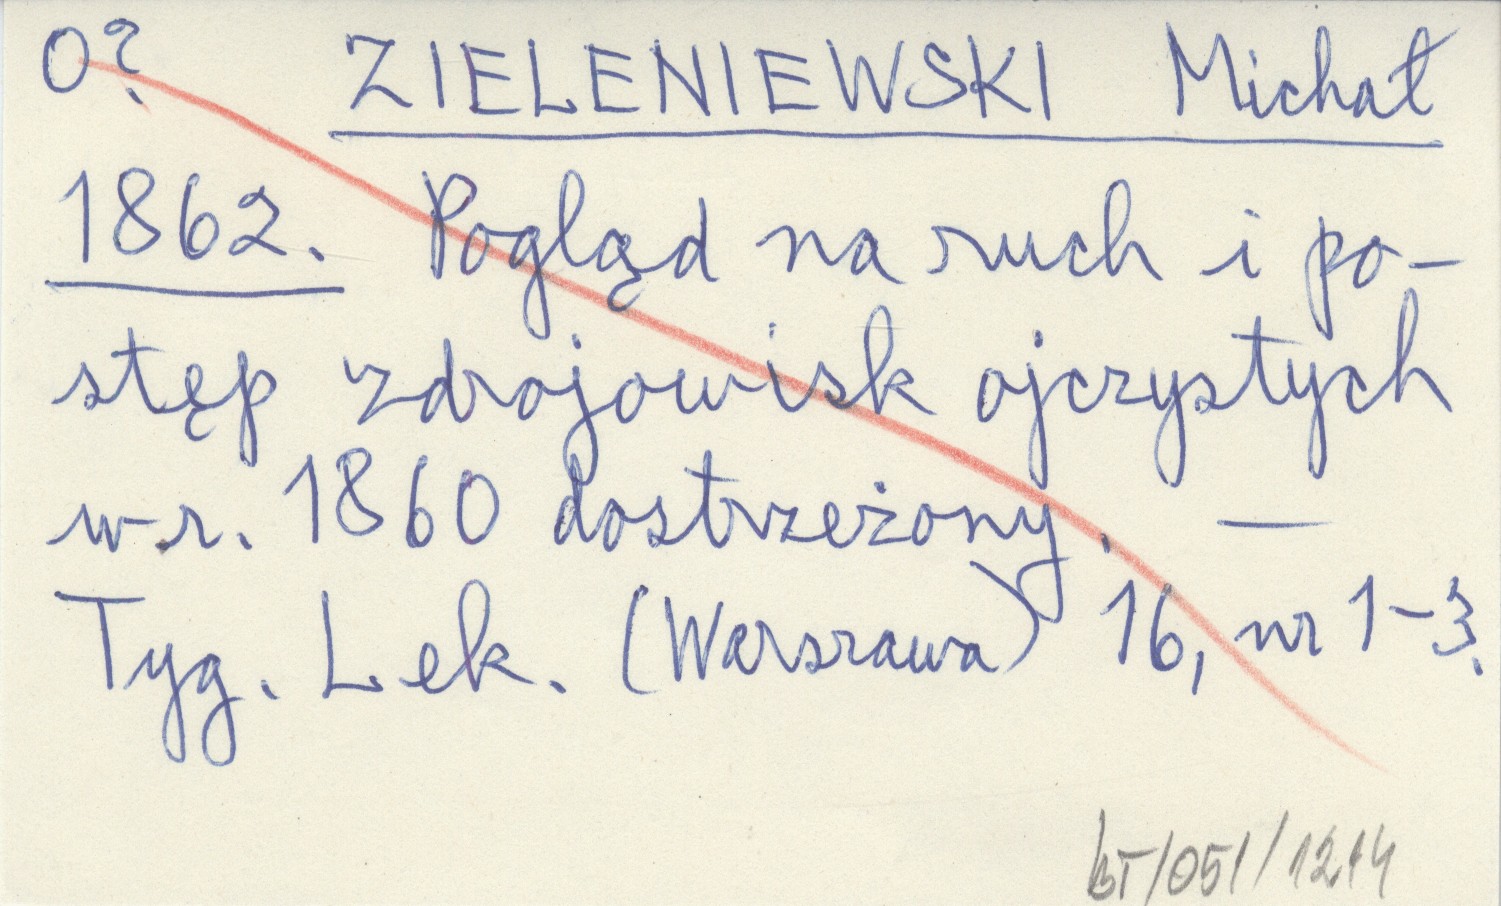 0? ZIELENIEWSKI Michał
1862. Pogląd na ruch i po-
stęp zdrojowisk ojczystych
w r. 1860 dostrzeżony. —
Tyg. Lek. (Warszawa) 16, nr 1-3.
BT/051/1214